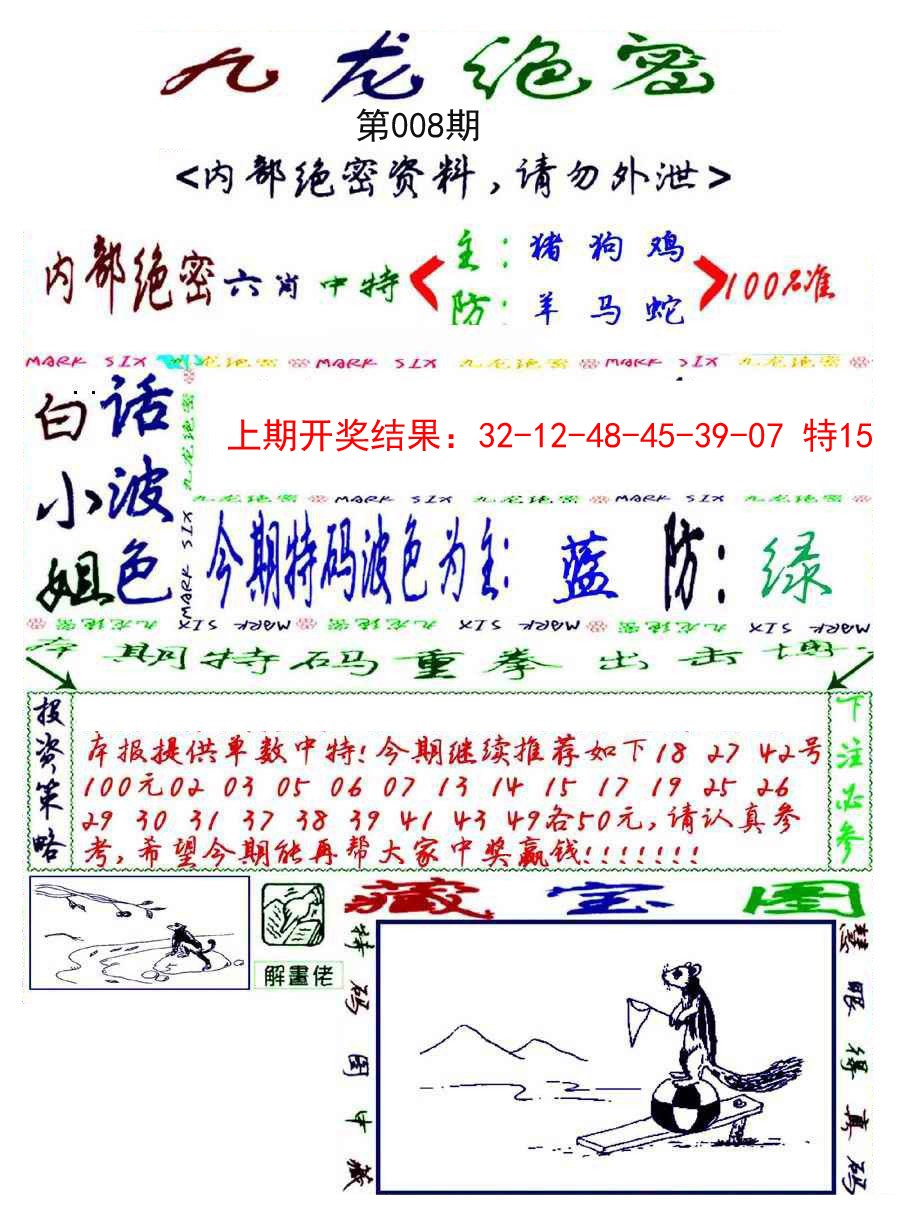 九龙绝密
第008期
<内部绝密资料,请勿外泄>
内部绝密六肖中特
主:猪狗鸡
防:羊马蛇
100%准
MARK SIX 九龙绝密 MARK SIX 九龙绝密 MARK SIX 九龙绝密
白话
小波
姐色
九龙绝密
MARK SIX
上期开奖结果：32-12-48-45-39-07 特15
九龙绝密 MARK SIX 九龙绝密 MARK SIX 九龙绝密
今期特码波色为主: 蓝 防: 绿
MARK SIX 九龙绝密 MARK SIX 九龙绝密 MARK SIX 九龙绝密
本期特码重拳出击
投资策略
本报提供单数中特!今期继续推荐如下18 27 42号
100元02 03 05 06 07 13 14 15 17 19 25 26
29 30 31 37 38 39 41 43 49各50元,请认真参
考,希望今期能再帮大家中奖赢钱!!!!!!!
下注必参
解畫佬
藏宝图
特码图中藏
慧眼得真码